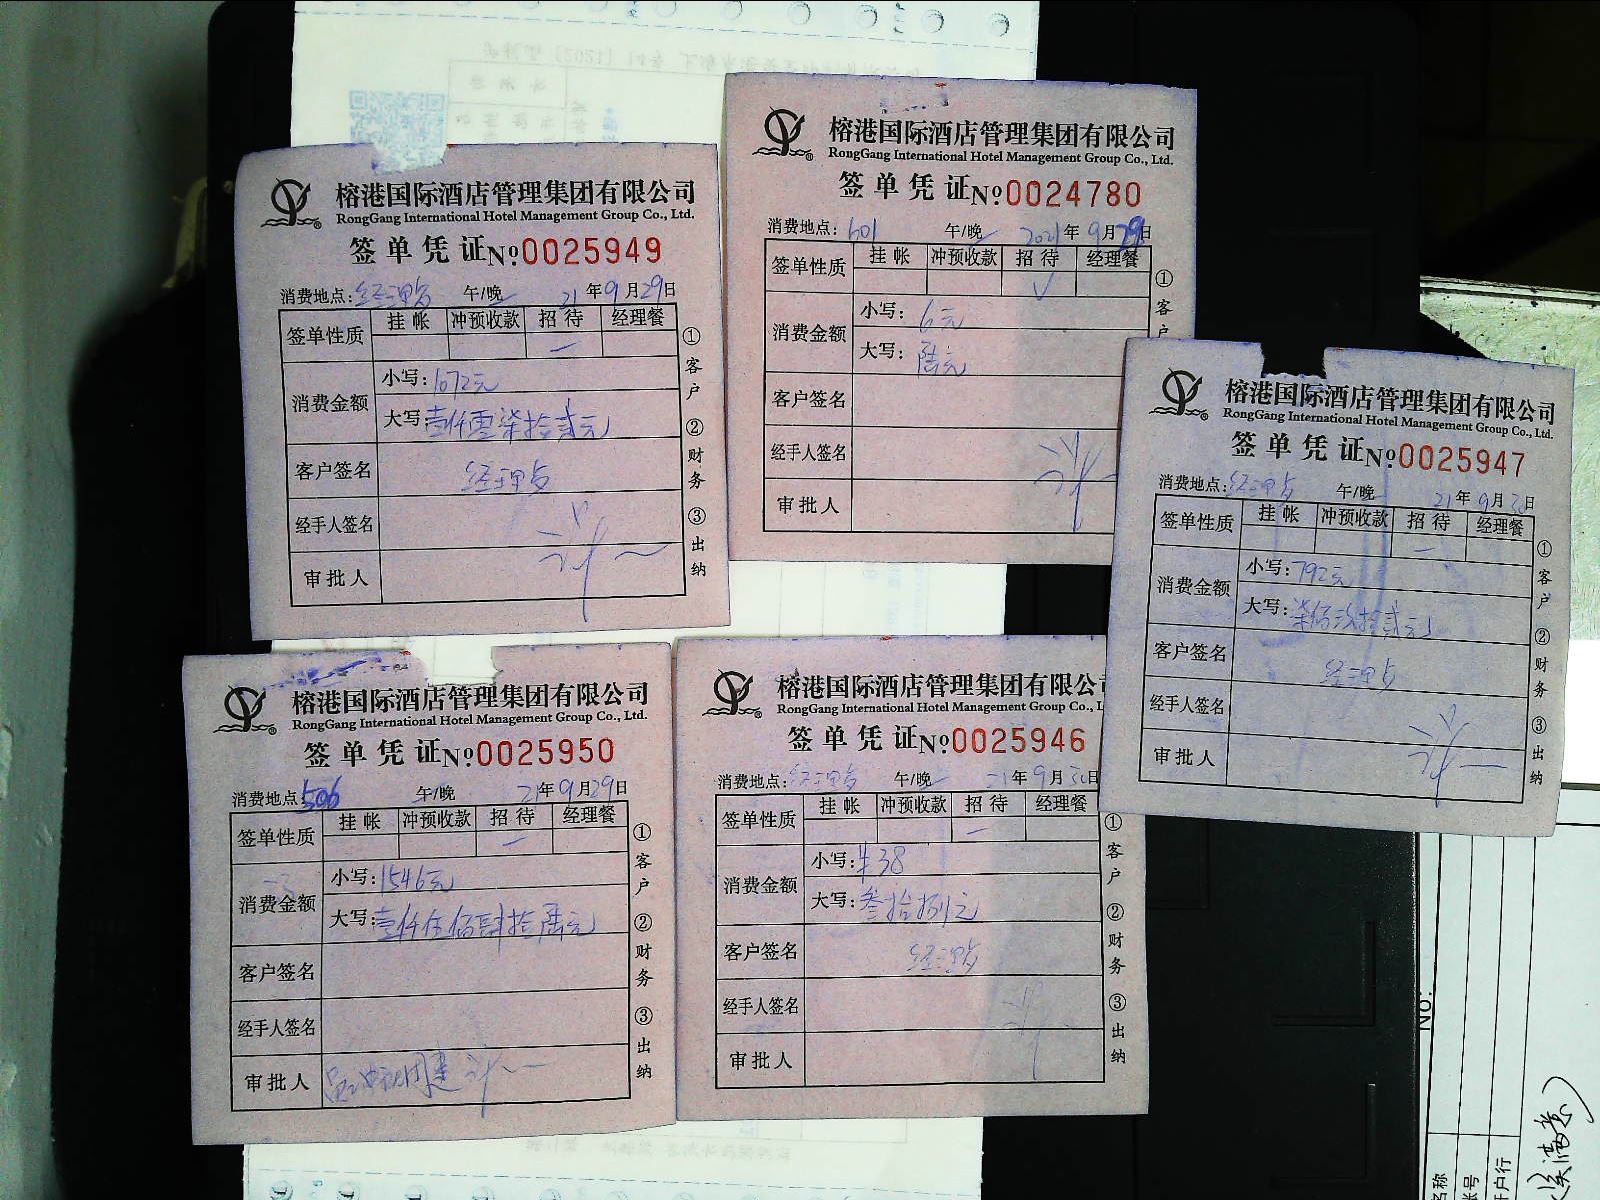 榕港国际酒店管理集团有限公司
RongGang International Hotel Management Group Co., Ltd.
签单凭证 No 0025949
消费地点: 经理房 午/晚 21年9月29日
签单性质 挂帐 冲预收款 招待 经理餐
消费金额
小写: 1072元
大写 壹仟零柒拾贰元
客户签名
经手人签名
审批人
①客户 ②财务 ③出纳
榕港国际酒店管理集团有限公司
RongGang International Hotel Management Group Co., Ltd.
签单凭证 No 0024780
消费地点: 601 午/晚 2021年9月29日
签单性质 挂帐 冲预收款 招待 经理餐
消费金额
小写: 6元
大写: 陆元
客户签名
经手人签名
审批人
①客户
榕港国际酒店管理集团有限公司
RongGang International Hotel Management Group Co., Ltd.
签单凭证 No 0025947
消费地点: 午/晚 21年9月30日
签单性质 挂帐 冲预收款 招待 经理餐
消费金额
小写: 792元
大写: 柒佰玖拾贰元
客户签名
经手人签名
审批人
①客户 ②财务 ③出纳
榕港国际酒店管理集团有限公司
RongGang International Hotel Management Group Co., Ltd.
签单凭证 No 0025950
消费地点: 506 午/晚 21年9月29日
签单性质 挂帐 冲预收款 招待 经理餐
消费金额
小写: 1546元
大写: 壹仟伍佰肆拾陆元
客户签名
经手人签名
审批人
①客户 ②财务 ③出纳
榕港国际酒店管理集团有限公
RongGang International Hotel Management Group Co., L
签单凭证 No 0025946
消费地点: 午/晚 21年9月30日
签单性质 挂帐 冲预收款 招待 经理餐
消费金额
小写: ¥38
大写: 叁拾捌元
客户签名
经手人签名
审批人
①客户 ②财务 ③出纳
No:
名称
账号
开户行